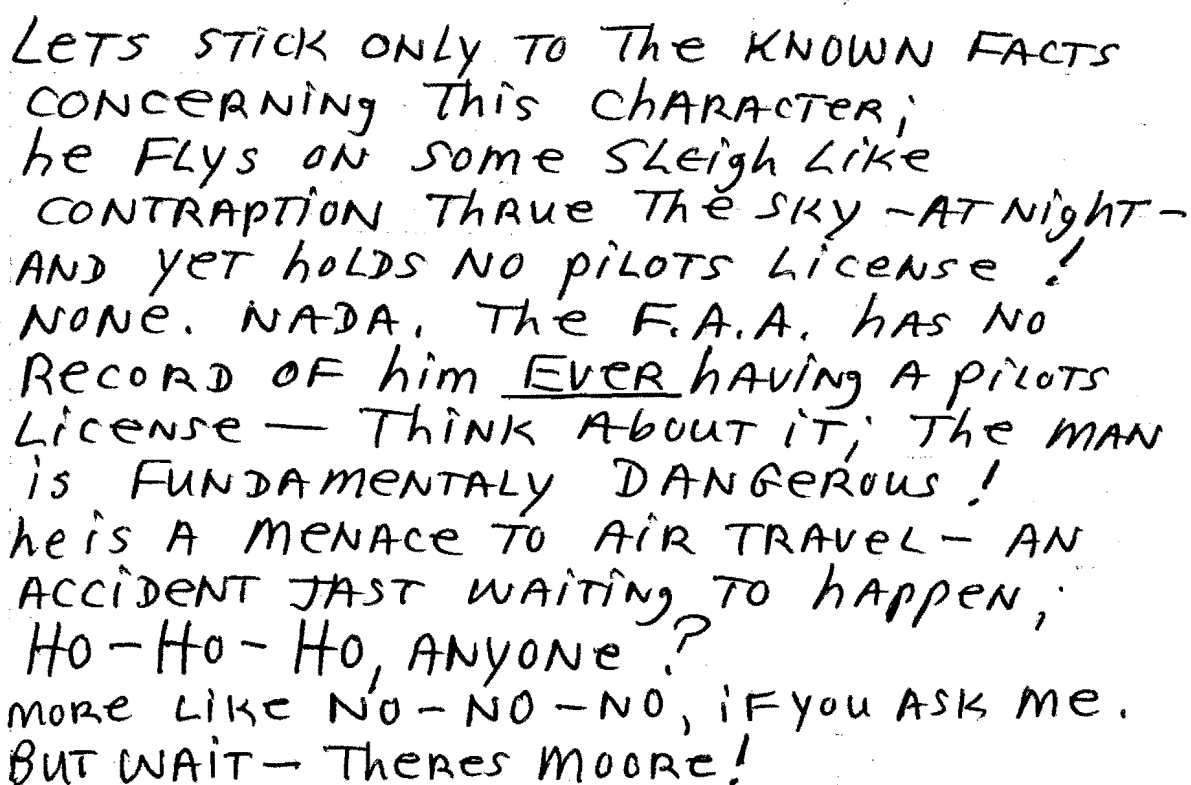 LETS STICK ONLY TO THE KNOWN FACTS
CONCERNING THIS CHARACTER;
he FLYS ON SOME SLEIGH LIKE
CONTRAPTION THRUE THE SKY - AT NIGHT -
AND YET HOLDS NO PILOTS LICENSE!
NONE. NADA. THE F.A.A. HAS NO
RECORD OF HIM EVER HAVING A PILOTS
LICENSE — THINK ABOUT IT; THE MAN
IS FUNDAMENTALY DANGEROUS!
he IS A MENACE TO AIR TRAVEL - AN
ACCIDENT JAST WAITING TO HAPPEN;
HO - HO - HO, ANYONE?
MORE LIKE NO - NO - NO, IF YOU ASK ME.
BUT WAIT - THERES MOORE!